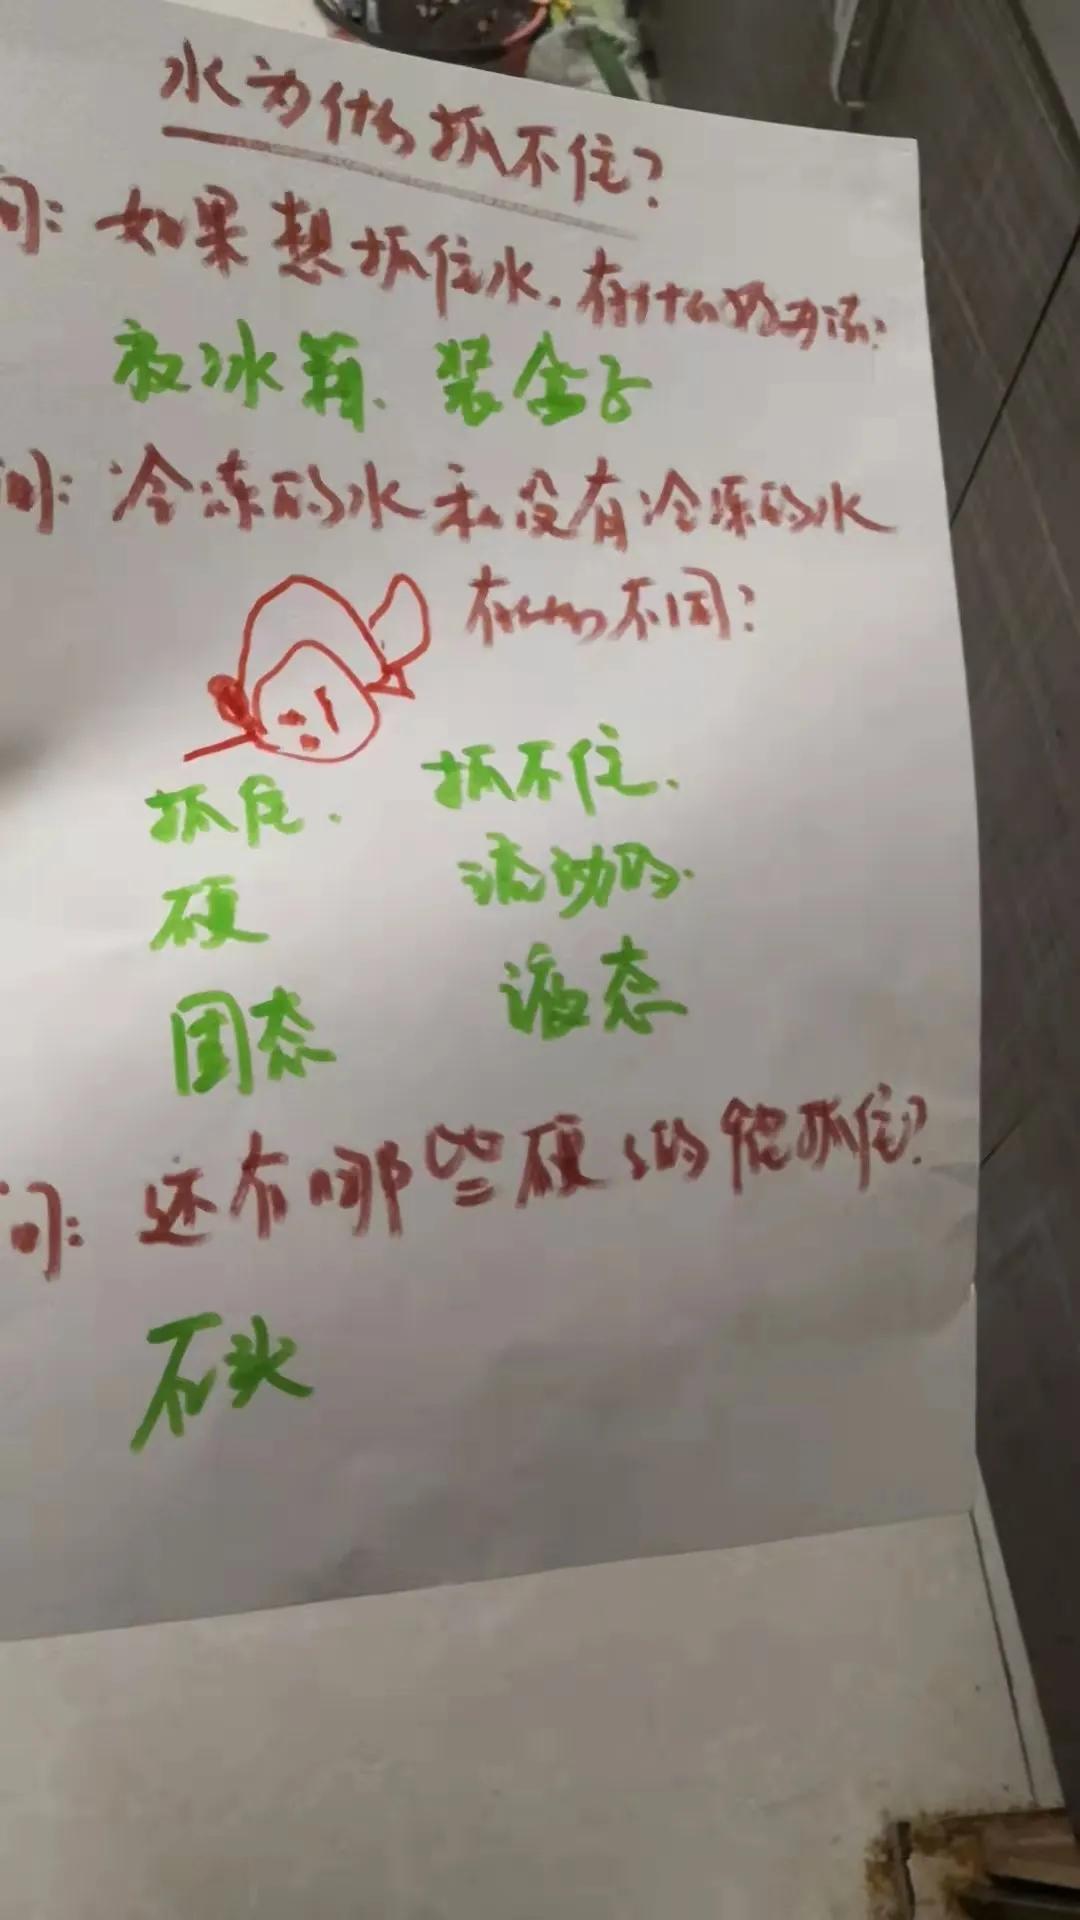 水为什么抓不住？
问：如果想抓住水，有什么好方法？
放冰箱、装盒子
问：冷冻的水和没有冷冻的水
有什么不同？
抓住. 抓不住.
硬 流动的.
固态 液态
问：还有哪些硬的能抓住？
石头